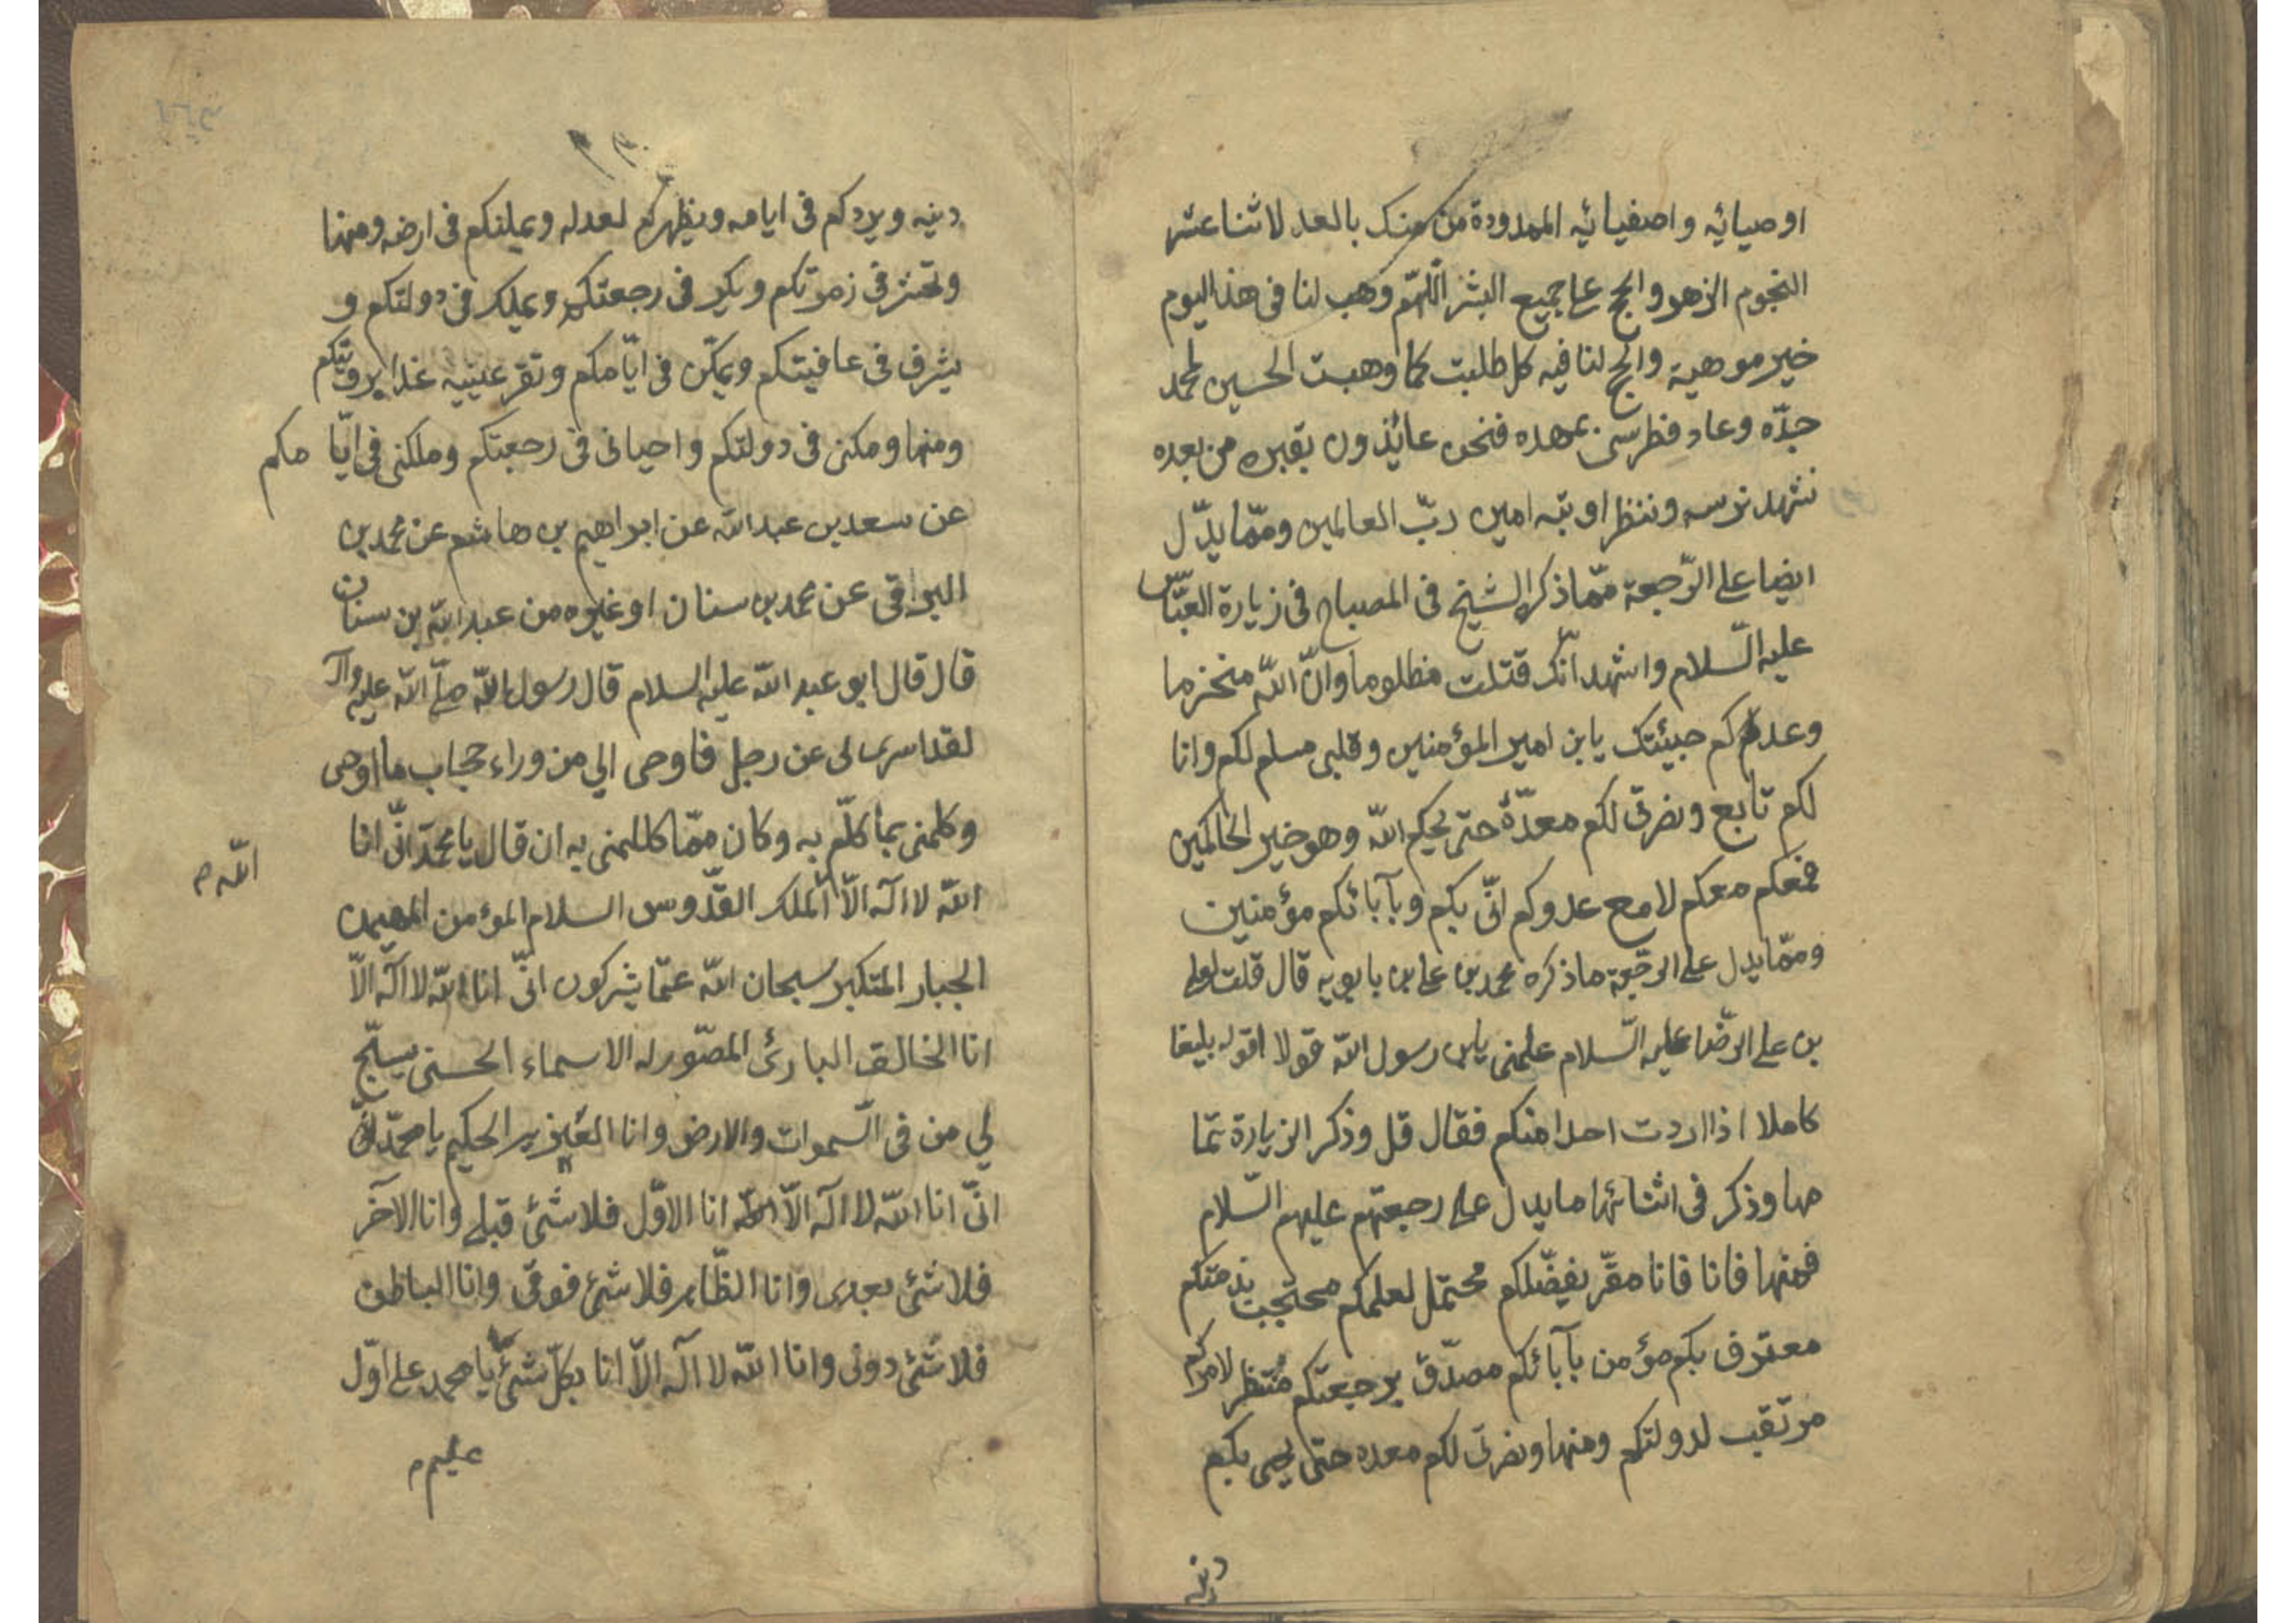 اوصيائه واصفيائيه الممدودة من منك بالعد لاثنا عشر
النجوم الزهر والحج على جميع البشر اللّهمّ وهب لنا فى هذا اليوم
خير موهبة وانجح لنا فيه كل طلبت كما وهبت الحسين لمحمد
جدّه وعاد فطرس بمهده فنحن عائذون بقبره من بعده
نشهد تربسه وننتظر اوبته امين ربّ العالمين وممّا يدّل
ايضا على الرّجعة ممّا ذكر الشيخ فى المصباح فى زيارة العبّاس
عليه السّلام واشهد انّك قتلت مظلوما وانّ اللّه منجز ما
وعدكم جيئتك يابن امير المؤمنين وقلبى مسلم لكم وانا
لكم تابع ونصرتى لكم معدّة حتى يحكم اللّه وهو خير الحاكمين
فمعكم معكم لا مع عدوكم انّى بكم وبآبائكم مؤمنين
وممّا يدل على الرجعة ما ذكره محمد بن على بن بابويه قال قلت لعلى
بن على الرضا عليه السّلام علمنى يابن رسول اللّه قولا اقوله بليغا
كاملا اذا اردت احدا منكم فقال قل وذكر الزيارة تما
مها وذكر فى اثنائها ما يدل على رجعتهم عليهم السّلام
فمنها فانا فانا مقرّ بفضّلكم محتمّل لعلمكم محتجب بذمتكم
معترف بكم مؤمن بآبائكم مصدّق برجعتكم منتظر لامركم
مرتقب لدولتكم ومنها ونصرتى لكم معده حتى يحيى بكم
دينه
دينه ويردكم فى ايامه ويظهركم لعدله ويملنكم فى ارضه ومنها
وتحشر فى زمرتكم ويكر فى رجعتكم ويملك فى دولتكم و
يشرف فى عافيتكم ويمكّن فى ايّامكم وتقر عينيه غدا برؤيتكم
ومنها ومكنى فى دولتكم واحيانى فى رجعتكم وملكنى فى ايّا مكم
عن سعد بن عبد اللّه عن ابراهيم بن هاشم عن محمد بن
البراقى عن محمد بن سنان او غيره من عبد اللّه بن سنان
قال قال ابو عبد اللّه عليه السلام قال رسول اللّه صلّى اللّه عليه وآله
لقد اسرى لى عن رجل فاوحى الي من وراء حجاب ما اوحى
وكلمنى بما كلّم به وكان ممّا كللمنى به ان قال يا محمّد انّى انا
اللّه م
اللّه لا اله الّا الملك القدّوس السلام المؤمن المهيمن
الجبار المتكبر سبحان اللّه عمّا يشركون انّى انا اللّه لا اله الّا
انا الخالق البارئ المصوّر له الاسماء الحسنى يسبّح
لي من فى السّموات والارض وانا العزيز الحكيم يا محمّد انّى
انّى انا اللّه لا اله الّا اللّه انا الاوّل فلا شئ قبلى وانا الآخر
فلا شئ بعدى وانا الظّاهر فلا شئ فوقى وانا الباطن
فلا شئ دونى وانا اللّه لا اله الّا انا بكلّ شئ يا محمد على اوّل
عليم م